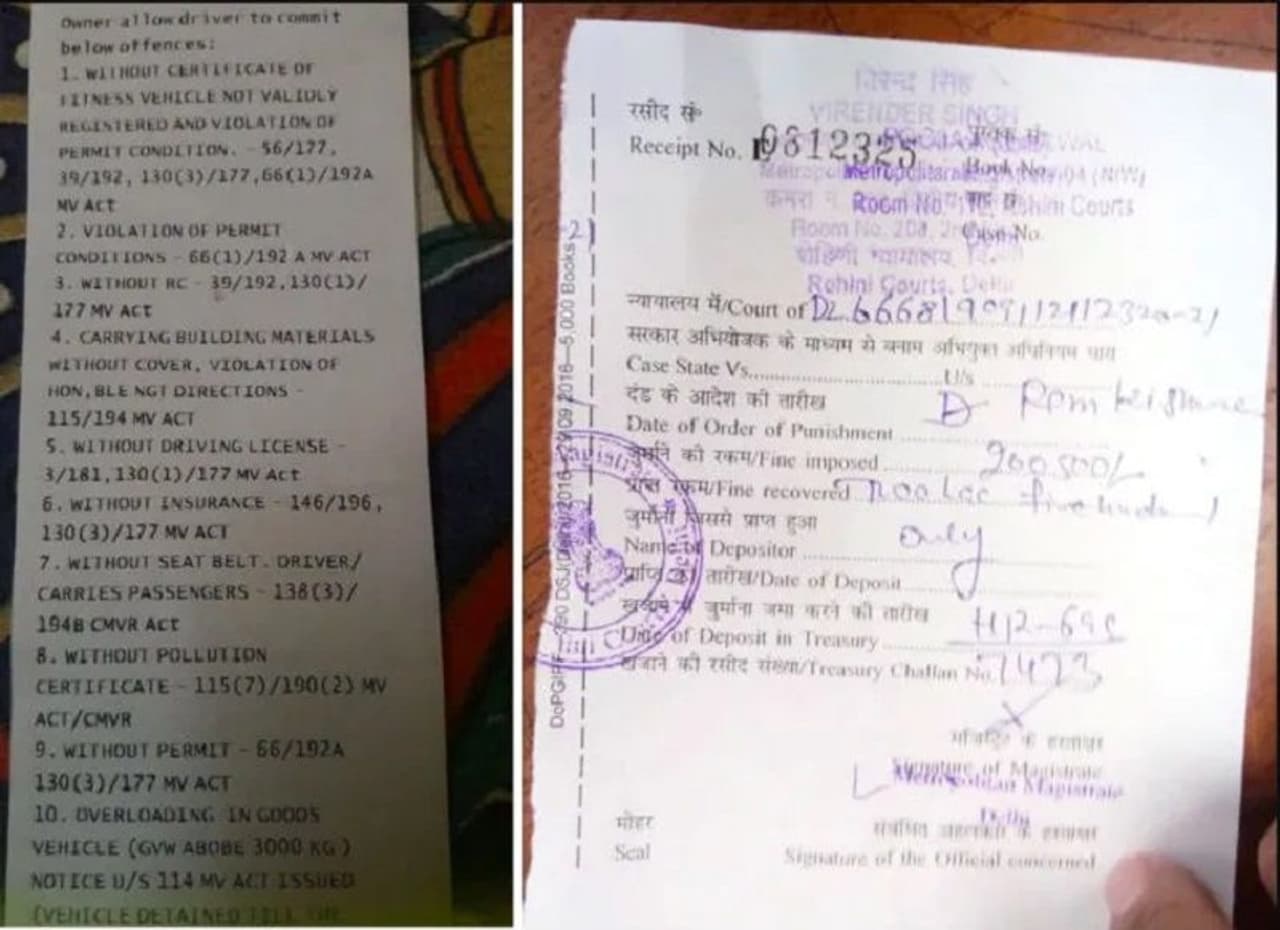 Owner allow driver to commit
below offences:
1. WITHOUT CERTIFICATE OF
FITNESS VEHICLE NOT VALIDLY
REGISTERED AND VIOLATION OF
PERMIT CONDITION. - 56/177,
39/192, 130(3)/177,66(1)/192A
MV ACT
2. VIOLATION OF PERMIT
CONDITIONS - 66(1)/192 A MV ACT
3. WITHOUT RC - 39/192,130(1)/
177 MV ACT
4. CARRYING BUILDING MATERIALS
WITHOUT COVER, VIOLATION OF
HON,BLE NGT DIRECTIONS -
115/194 MV ACT
5. WITHOUT DRIVING LICENSE -
3/181,130(1)/177 MV Act
6. WITHOUT INSURANCE - 146/196,
130(3)/177 MV ACT
7. WITHOUT SEAT BELT. DRIVER/
CARRIES PASSENGERS - 138(3)/
194B CMVR Act
8. WITHOUT POLLUTION
CERTIFICATE - 115(7)/190(2) MV
ACT/CMVR
9. WITHOUT PERMIT - 66/192A
130(3)/177 MV ACT
10. OVERLOADING IN GOODS
VEHICLE (GVW ABOBE 3000 KG)
NOTICE U/S 114 MV ACT ISSUED
(VEHICLE DETAINED TILL
सिंह
VIRENDER SINGH
रसीद सं०
Receipt No. 0612325
Book No.
Metropolitan (N/W)
Room No. Rohini Courts
Room No. 208, Case No.
रोहिणी न्यायालय
Rohini Courts, Delhi
न्यायालय में/Court of
सरकार अभियोजक के माध्यम से बनाम अभियुक्त अधिनियम धारा
Case State Vs. U/s
दंड के आदेश की तारीख
Date of Order of Punishment
जुर्माने की रकम/Fine imposed 200500/-
प्राप्त रकम/Fine recovered five
जुर्माना किससे प्राप्त हुआ only
Name of Depositor
प्राप्ति की तारीख/Date of Deposit
खजाने में जुर्माना जमा करने की तारीख
Date of Deposit in Treasury
खजाने की रसीद संख्या/Treasury Challan No.
मजिस्ट्रेट के हस्ताक्षर
Signature of Magistrate
Metropolitan Magistrate
Delhi
मोहर संबंधित अहलकार के हस्ताक्षर
Seal Signature of the Official concerned